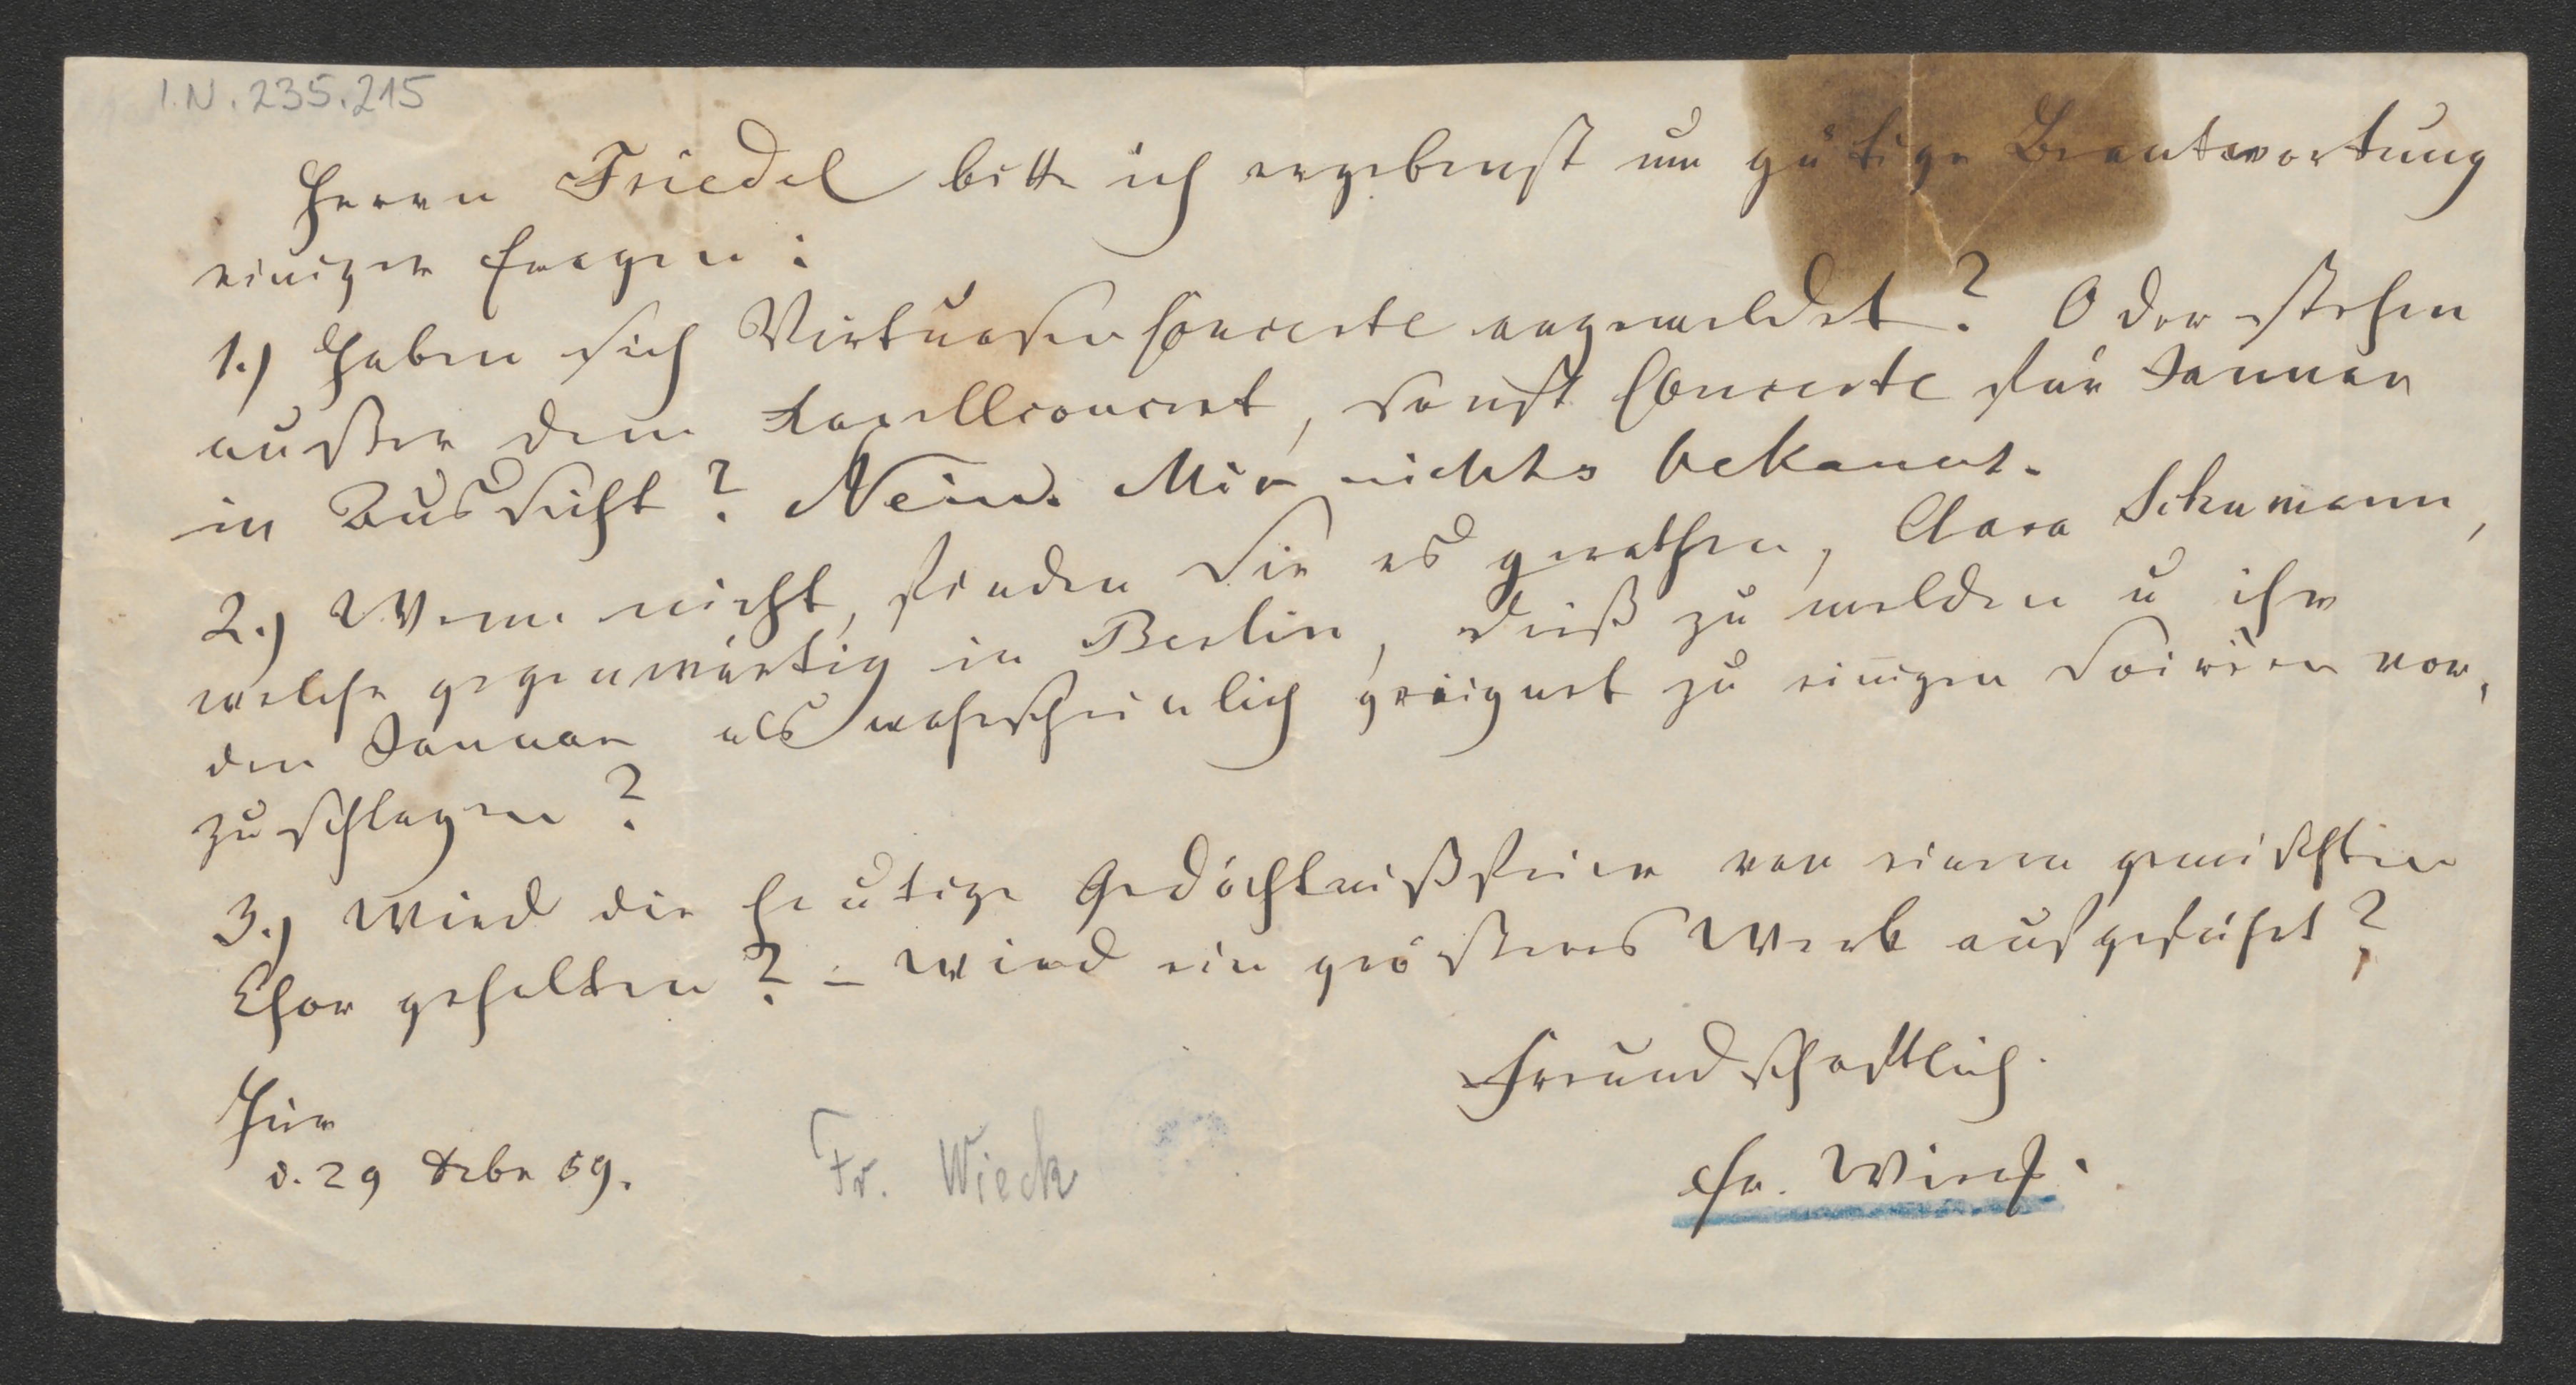 I.N. 235.215
Herrn Friedel bitte ich ergebenst um gütige Beantwortung
einiger Fragen:
1.) Haben sich Virtuosen Concerte angemeldet? Oder stehen
außer dem Kapellconcert, sonst Concerte für Januar
in Aussicht? Nein. Mir nichts bekannt.
2.) Wenn nicht, finden Sie es gerathen, Clara Schumann,
welche gegenwärtig in Berlin, dieß zu melden u ihr
den Januar als wahrscheinlich geeignet zu einigen Soiréen vor,
zuschlagen?
3.) Wird die heutige Gedächtnißfeier von einem gemischten
Chor gehalten? – Wird ein größeres Werk aufgeführt?
Freundschaftlich.
Hier
d. 29 Debr 59.
Fr. Wieck
Fr. Wieck.